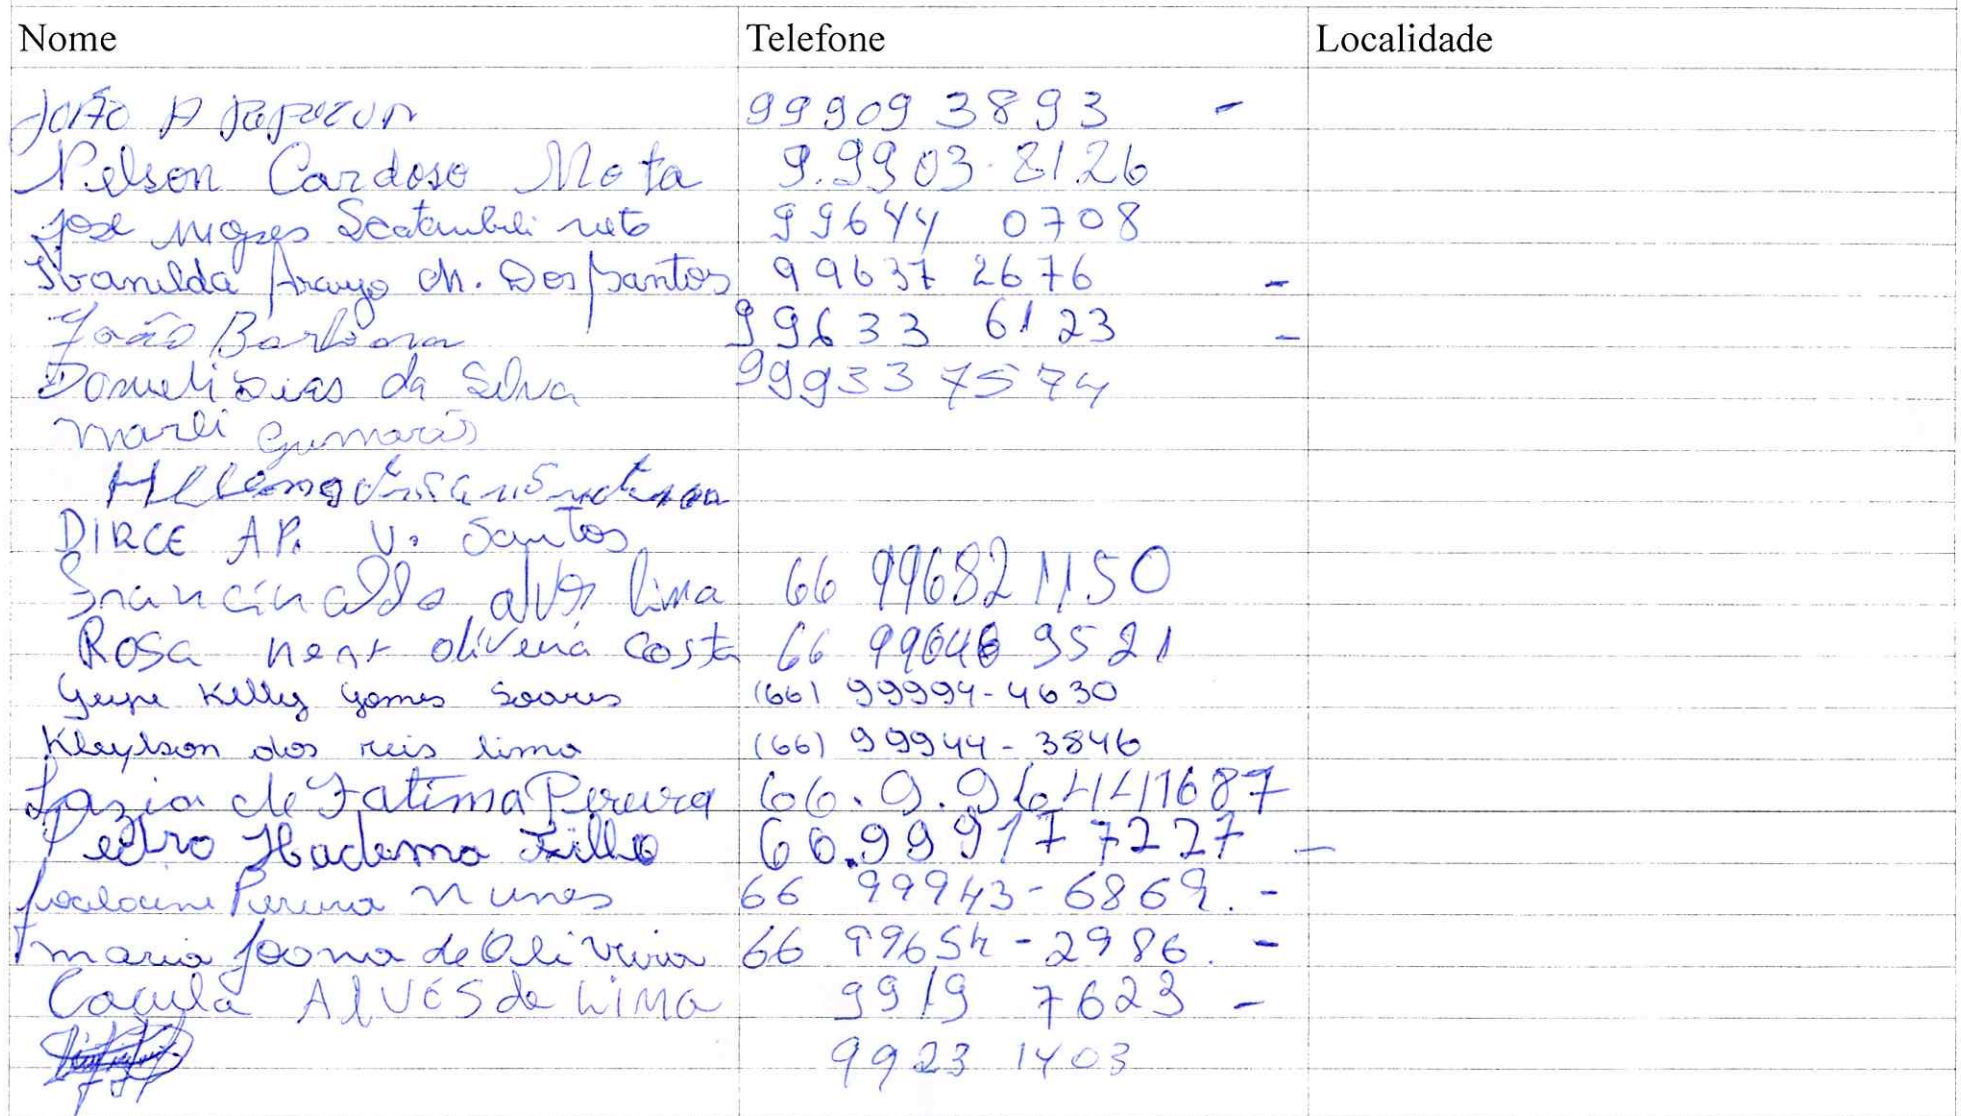 Nome Telefone Localidade
João A 99909 3893 -
Nelson Cardoso Mota 9.9903-8126
José Moyses Scatambuli neto 99644 0708
Ivanilda Araujo Ch. Dos Santos 99637 2676 -
João Barbosa 99633 6123 -
Dias da Silva 99933 7574
Marli Gumarãs

DIRCE AP. V. Santos
Francinaldo alves lima 66 996821150
Rosa nent oliveira costa 66 99646 9521
Kelly Gomes Soares (66) 99994-4630
Kleylson dos reis lima (66) 99944-3846
Lazia de Fatima Pereira 66.9.96441687
Pedro Hadama Filho 66.999177227 -
Joelaine Pereira Nunes 66 99943-6869. -
maria Joana de Oliveira 66 99654-2986. -
Caçula ALVES de LIMA 9919 7623 -
9923 1403